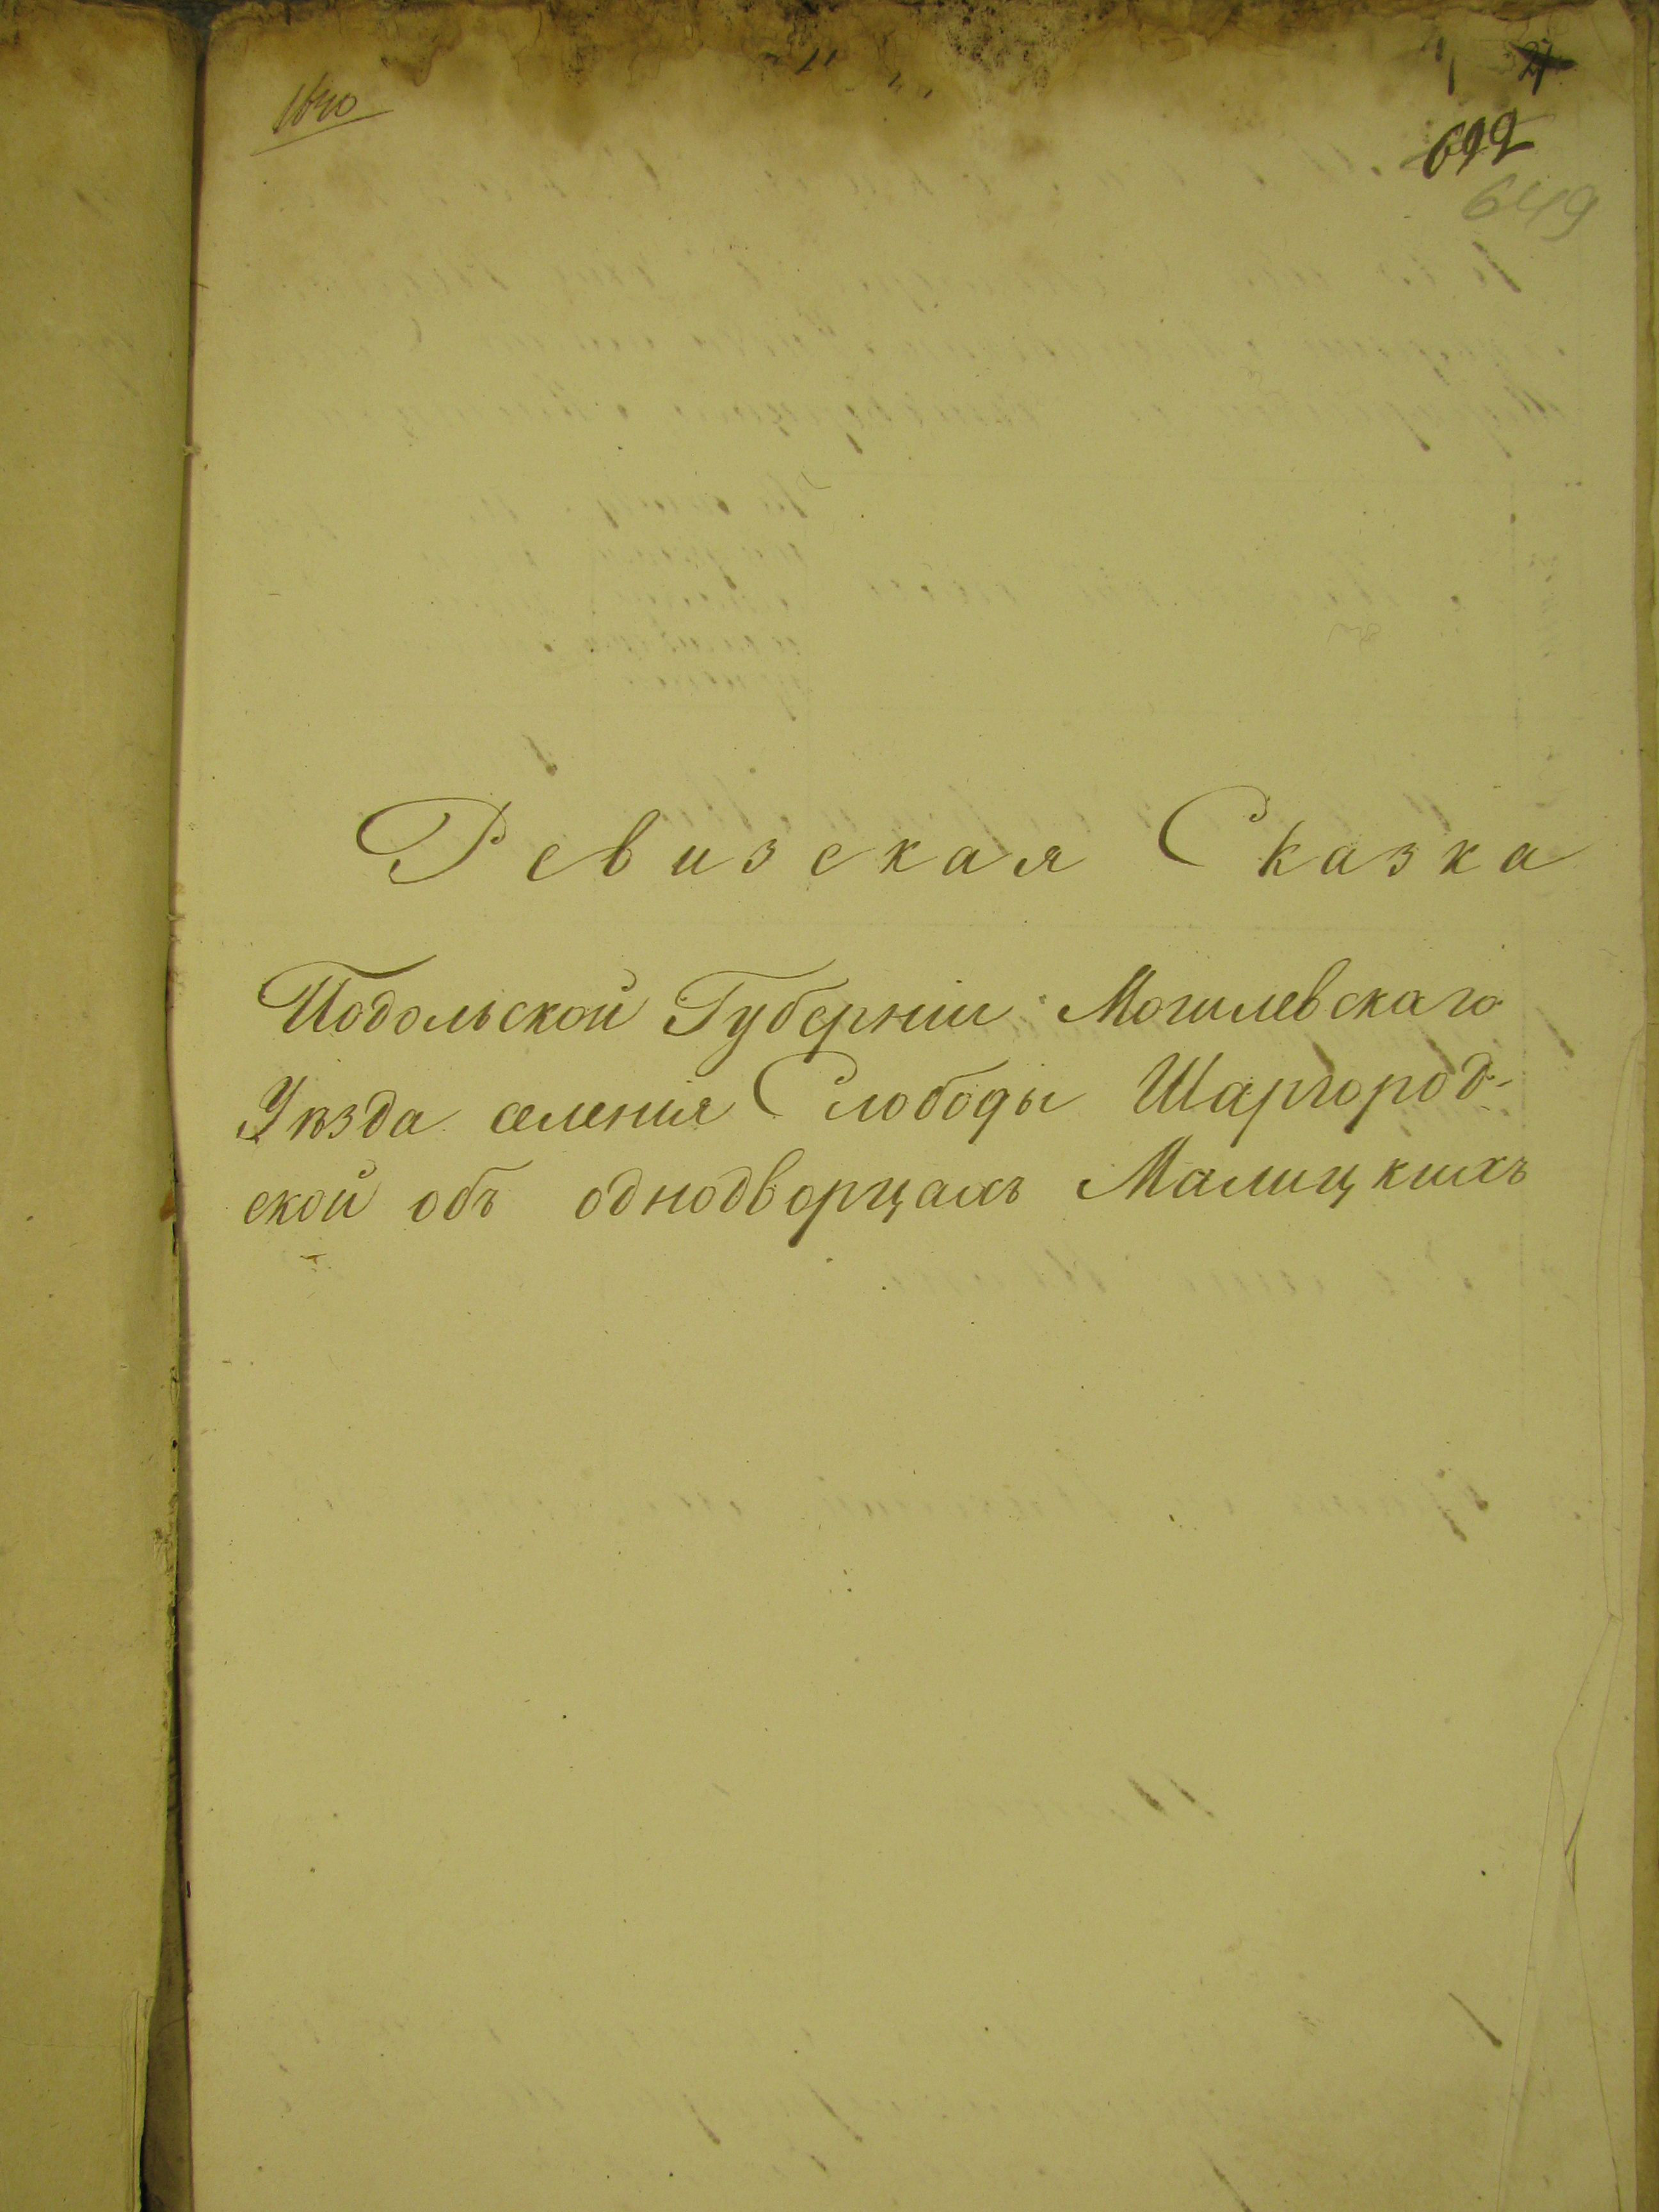 1640
692
649
Ревизская Сказка
Подольской Губерніи Могилевскаго
Уѣзда селенія Слободы Шаргород-
ской объ однодворцахъ Малицкихъ